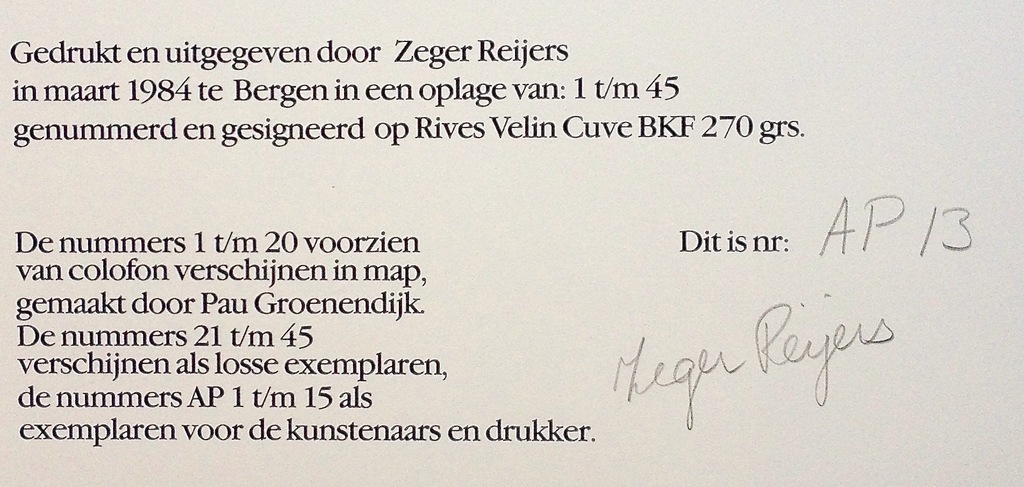 Gedrukt en uitgegeven door Zeger Reijers
in maart 1984 te Bergen in een oplage van: 1 t/m 45
genummerd en gesigneerd op Rives Velin Cuve BKF 270 grs.
De nummers 1 t/m 20 voorzien
van colofon verschijnen in map,
gemaakt door Pau Groenendijk.
De nummers 21 t/m 45
verschijnen als losse exemplaren,
de nummers AP 1 t/m 15 als
exemplaren voor de kunstenaars en drukker.
Dit is nr: AP 13
Zeger Reijers